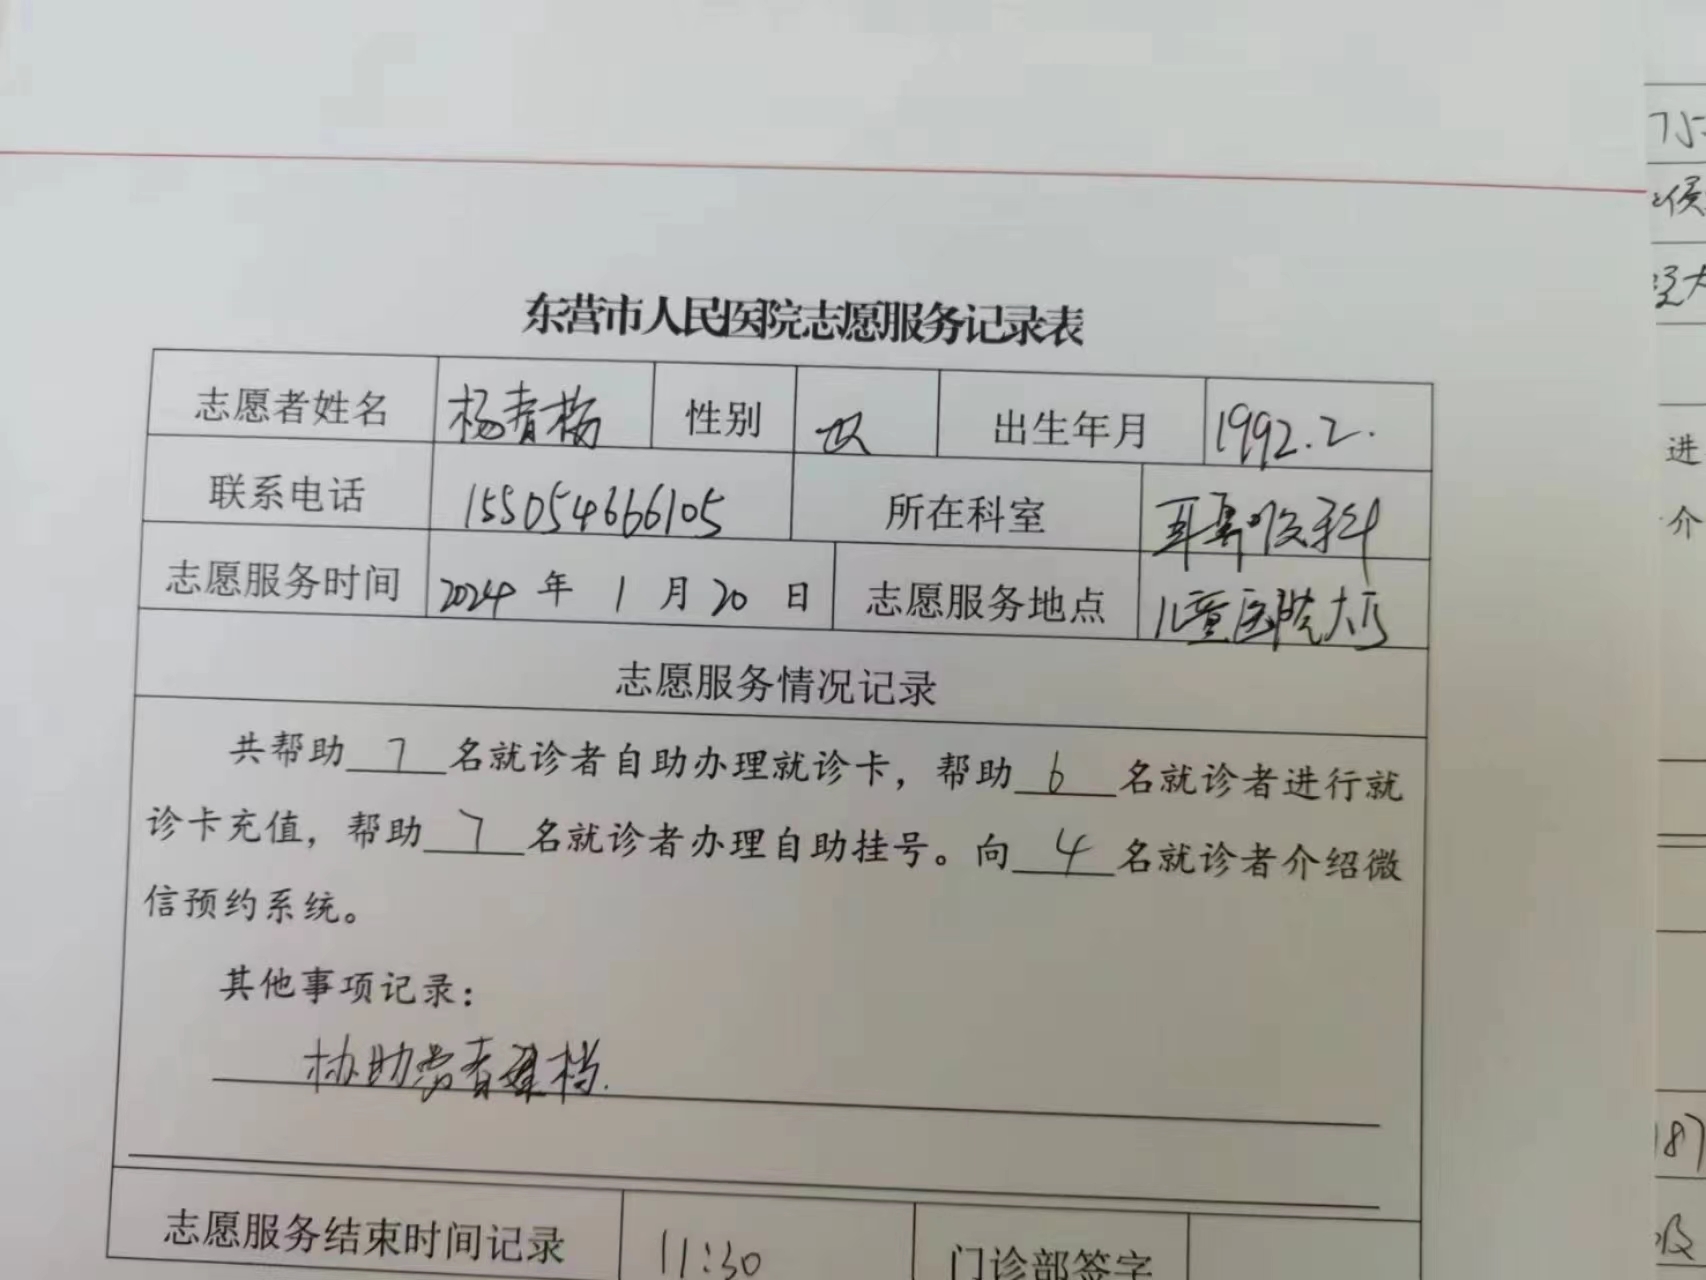 东营市人民医院志愿服务记录表
志愿者姓名 杨青梅 性别 女 出生年月 1992.2.
联系电话 155054666105 所在科室 耳鼻喉科
志愿服务时间 2024 年 1 月 20 日 志愿服务地点 儿童医院大厅
志愿服务情况记录
共帮助 7 名就诊者自助办理就诊卡，帮助 6 名就诊者进行就
诊卡充值，帮助 7 名就诊者办理自助挂号。向 4 名就诊者介绍微
信预约系统。
其他事项记录：
协助患者建档.
志愿服务结束时间记录 11:30 门诊部签字
进
介
187